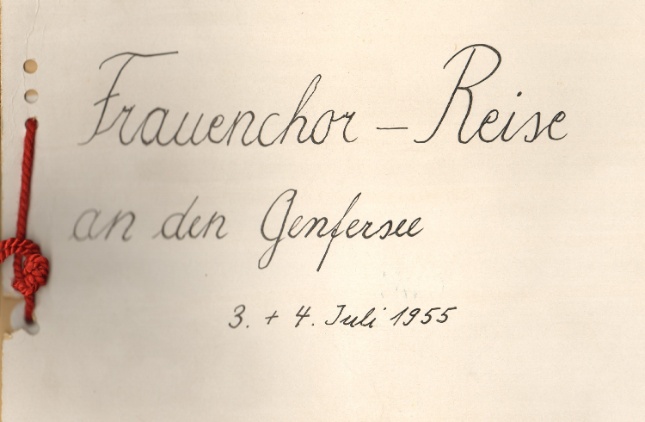 Frauenchor - Reise
an den Genfersee
3. + 4. Juli 1955